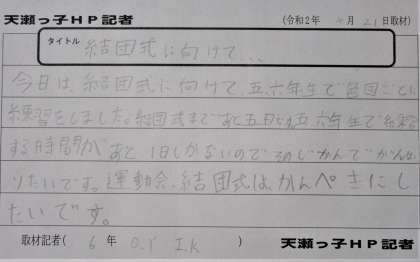 天瀬っ子HP記者
(令和2年 月21日取材)
タイトル
結団式に向けて...
今日は、結団式に向けて、五、六年生で色団ごとに
練習をしました。結団式まであと五日で五六年生で練習
する時間があと1日しかないので3のじかんでがんば
りたいです。運動会、結団式はかんぺきにし
たいです。
取材記者( 6年 O.Y I.K )
天瀬っ子HP記者